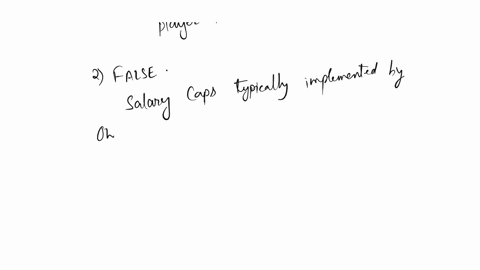 2) FALSE.
Salary Caps typically implemented by